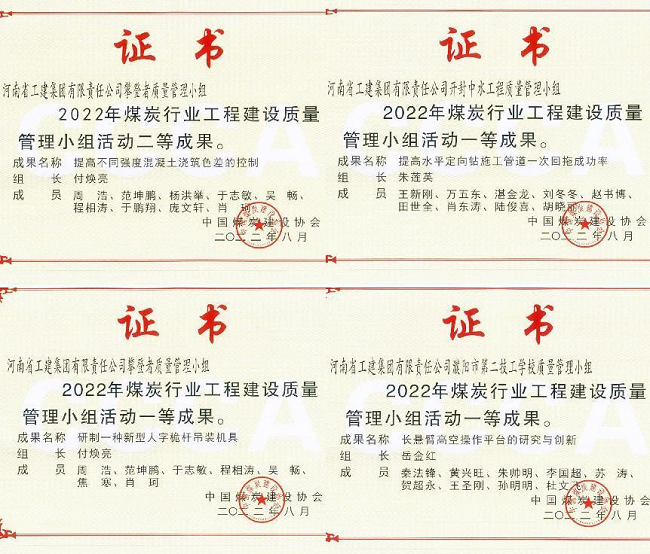 证书
河南省工建集团有限责任公司攀登者质量管理小组
2022年煤炭行业工程建设质量
管理小组活动二等成果。
成果名称 提高不同强度混凝土浇筑色差的控制
组 长 付焕亮
成 员 周 浩、范坤鹏、杨洪举、于志敏、吴 畅、
程相涛、于鹏翔、庞文轩、肖 珂
中国煤炭建设协会
二〇二二年八月
证书
河南省工建集团有限责任公司开封中水工程质量管理小组
2022年煤炭行业工程建设质量
管理小组活动一等成果。
成果名称 提高水平定向钻施工管道一次回拖成功率
组 长 朱莲英
成 员 王新刚、万五东、湛金龙、刘冬冬、赵书博、
田世全、肖东涛、陆俊喜、胡晓丽
中国煤炭建设协会
二〇二二年八月
证书
河南省工建集团有限责任公司攀登者质量管理小组
2022年煤炭行业工程建设质量
管理小组活动一等成果。
成果名称 研制一种新型人字桅杆吊装机具
组 长 付焕亮
成 员 周 浩、范坤鹏、于志敏、程相涛、吴 畅、
焦 寒、肖 珂
中国煤炭建设协会
二〇二二年八月
证书
河南省工建集团有限责任公司濮阳市第二技工学校质量管理小组
2022年煤炭行业工程建设质量
管理小组活动一等成果。
成果名称 长悬臂高空操作平台的研究与创新
组 长 岳金红
成 员 秦法锋、黄兴旺、朱帅明、李国超、苏 涛、
贺超永、王圣刚、孙明明、杜文飞
中国煤炭建设协会
二〇二二年八月